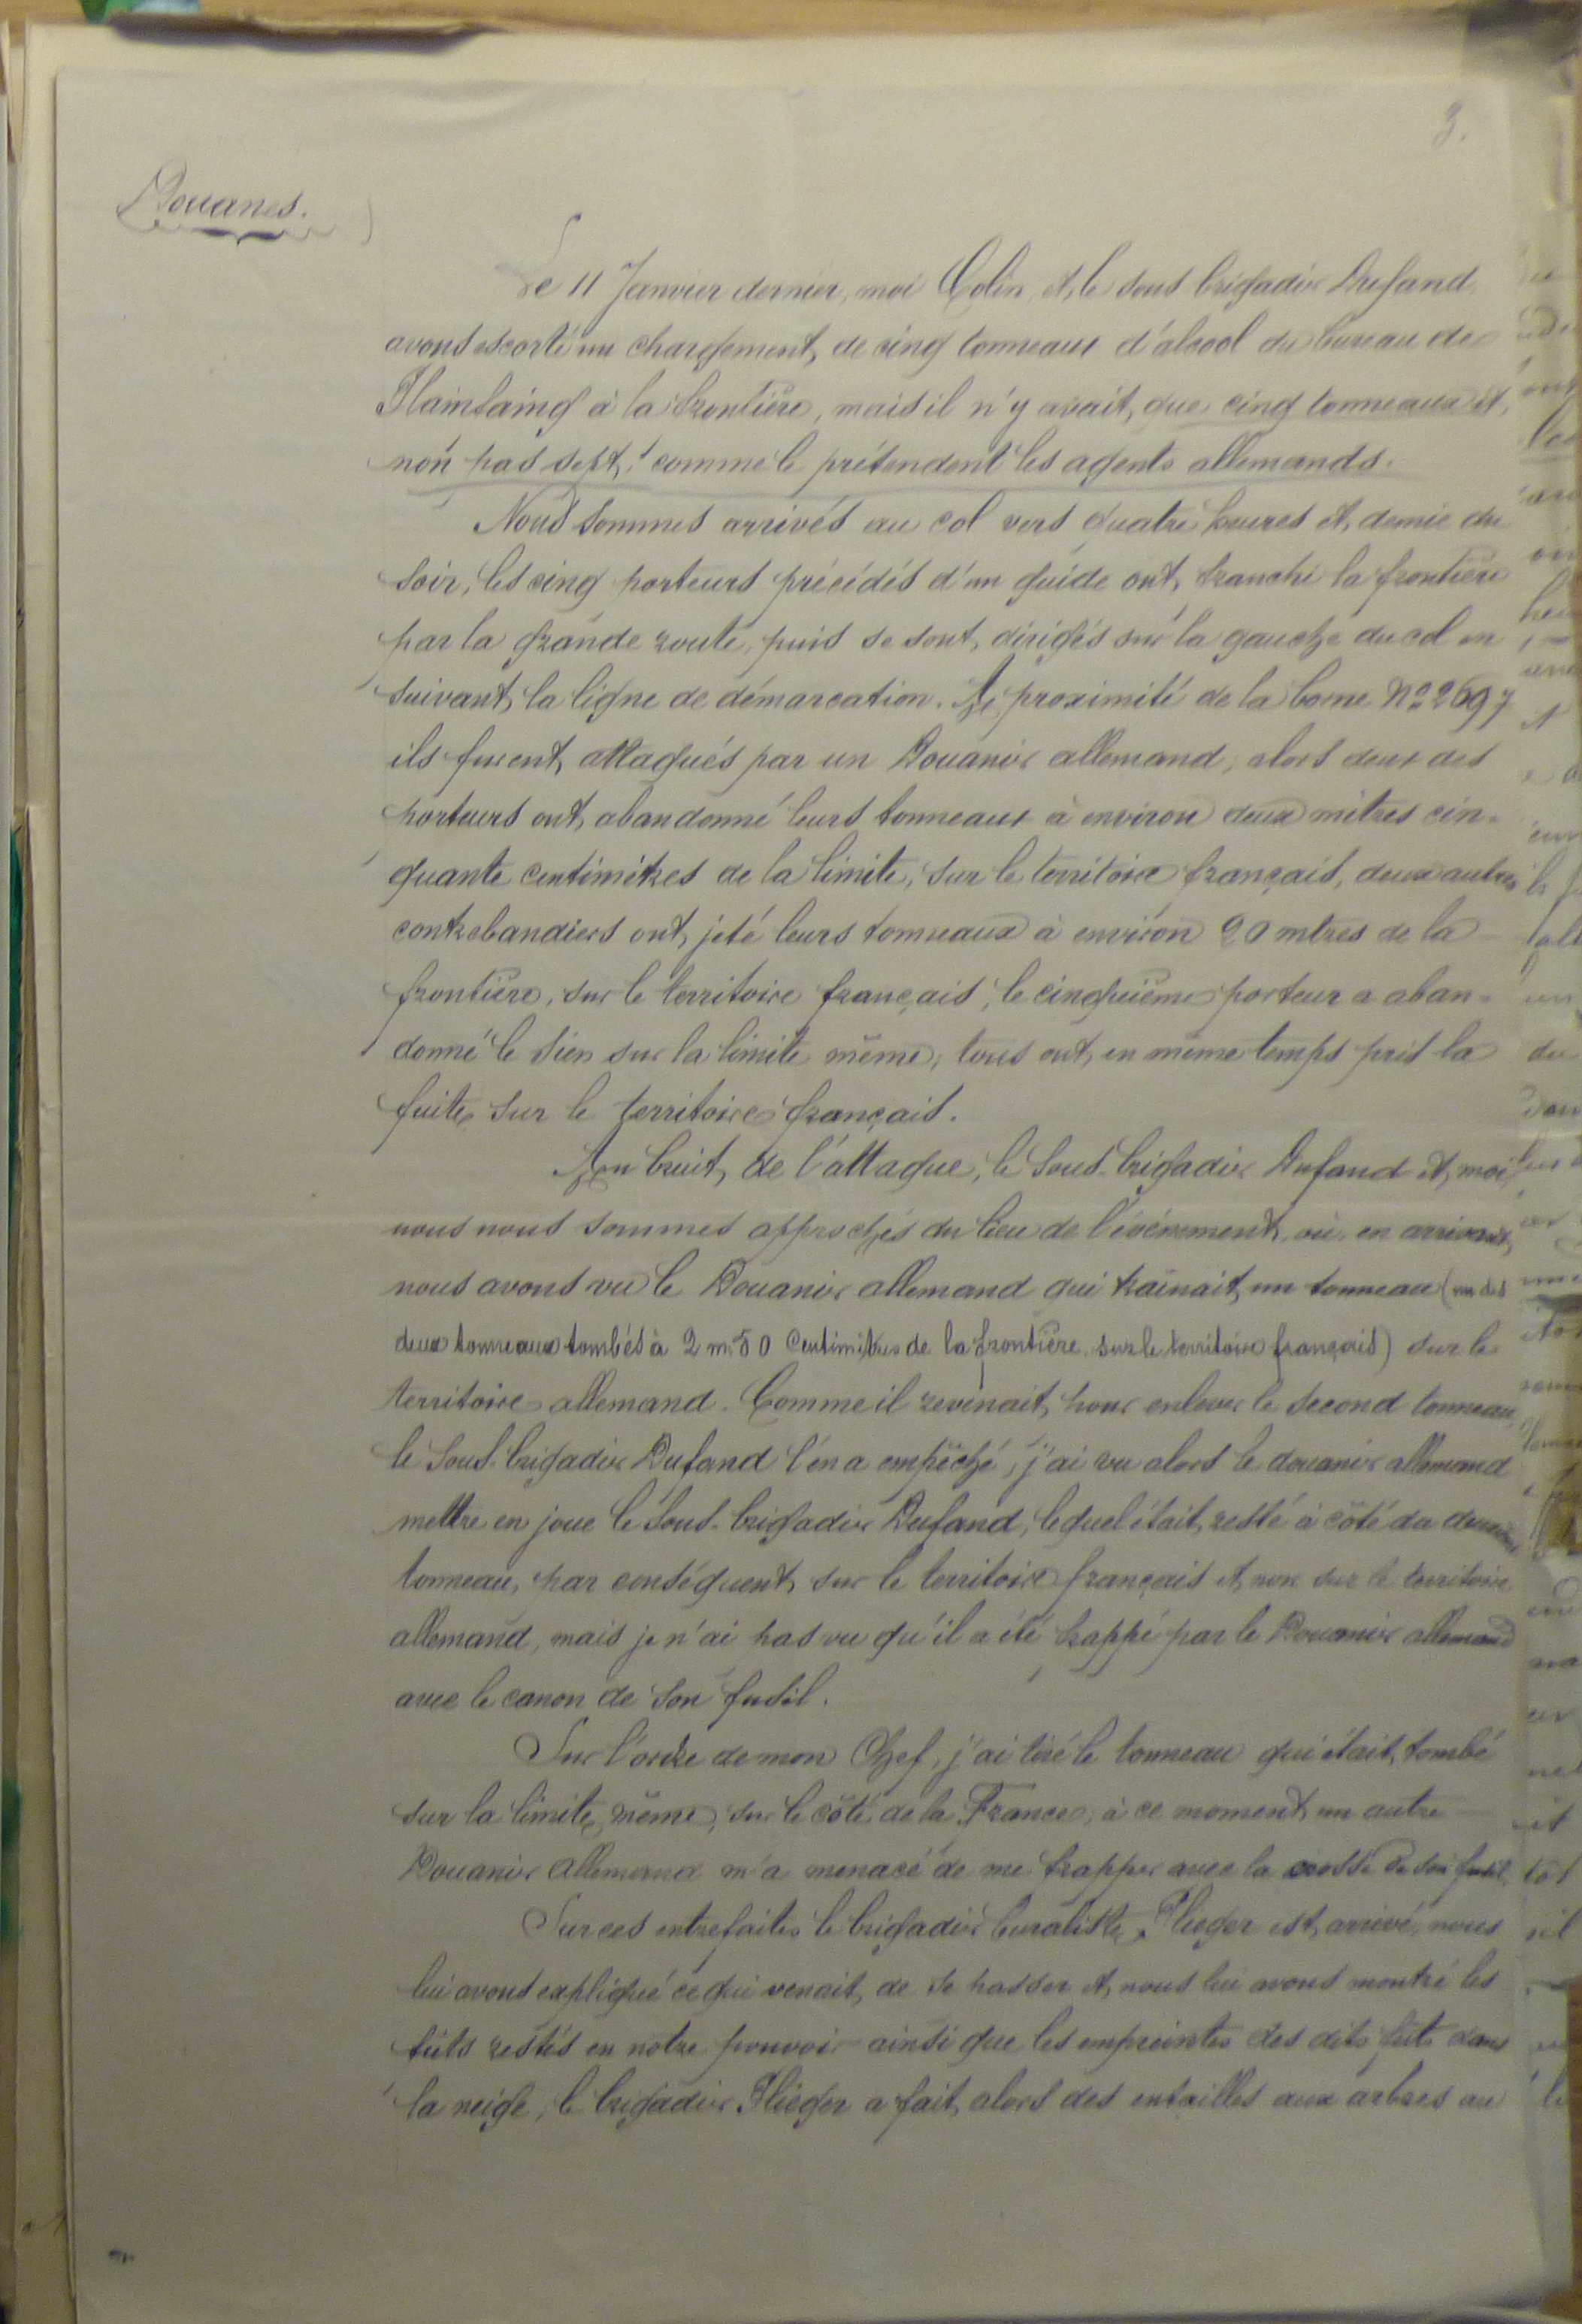 3.
Douanes.
Le 11 Janvier dernier, moi Colin, et le sous brigadier Dufand,
avons escorté un chargement de cinq tonneaux d'alcool du bureau de
Plainfaing à la frontière, mais il n'y avait que cinq tonneaux et
non pas sept, comme le prétendent les agents allemands.
Nous sommes arrivés au col vers quatre heures et demie du
soir, les cinq porteurs précédés d'un guide ont franchi la frontière
par la grande route, puis se sont dirigés sur la gauche du col en
suivant la ligne de démarcation. A proximité de la borne No 2697
ils furent attaqués par un Douanier allemand, alors deux des
porteurs ont abandonné leurs tonneaux à environ deux mètres cin-
quante centimètres de la limite, sur le territoire français, deux autres
contrebandiers ont jeté leurs tonneaux à environ 20 mtres de la
frontière, sur le territoire français, le cinquième porteur a aban-
donné le sien sur la limite même, tous ont en même temps pris la
fuite sur le territoire français.
Au bruit de l'attaque, le sous-brigadier Dufand et moi,
nous nous sommes approchés du lieu de l'événement, où, en arrivant,
nous avons vu le Douanier allemand qui traînait un tonneau (un des
deux tonneaux tombés à 2 m. 50 Centimètres de la frontière sur le territoire français) sur le
territoire allemand. Comme il revenait pour enlever le second tonneau,
le sous-brigadier Dufand l'en a empêché, j'ai vu alors le douanier allemand
mettre en joue le sous-brigadier Dufand, lequel était resté à côté du deuxième
tonneau, par conséquent sur le territoire français et non sur le territoire
allemand, mais je n'ai pas vu qu'il a été frappé par le Douanier allemand
avec le canon de son fusil.
Sur l'ordre de mon Chef, j'ai tiré le tonneau qui était tombé
sur la limite même, sur le côté de la France, à ce moment un autre
Douanier allemand m'a menacé de me frapper avec la crosse de son fusil.
Sur ces entrefaites le brigadier buraliste Flieger est arrivé, nous
lui avons expliqué ce qui venait de se passer et nous lui avons montré les
fûts restés en notre pouvoir ainsi que les empreintes des dits fûts dans
la neige, le brigadier Flieger a fait alors des entailles aux arbres au